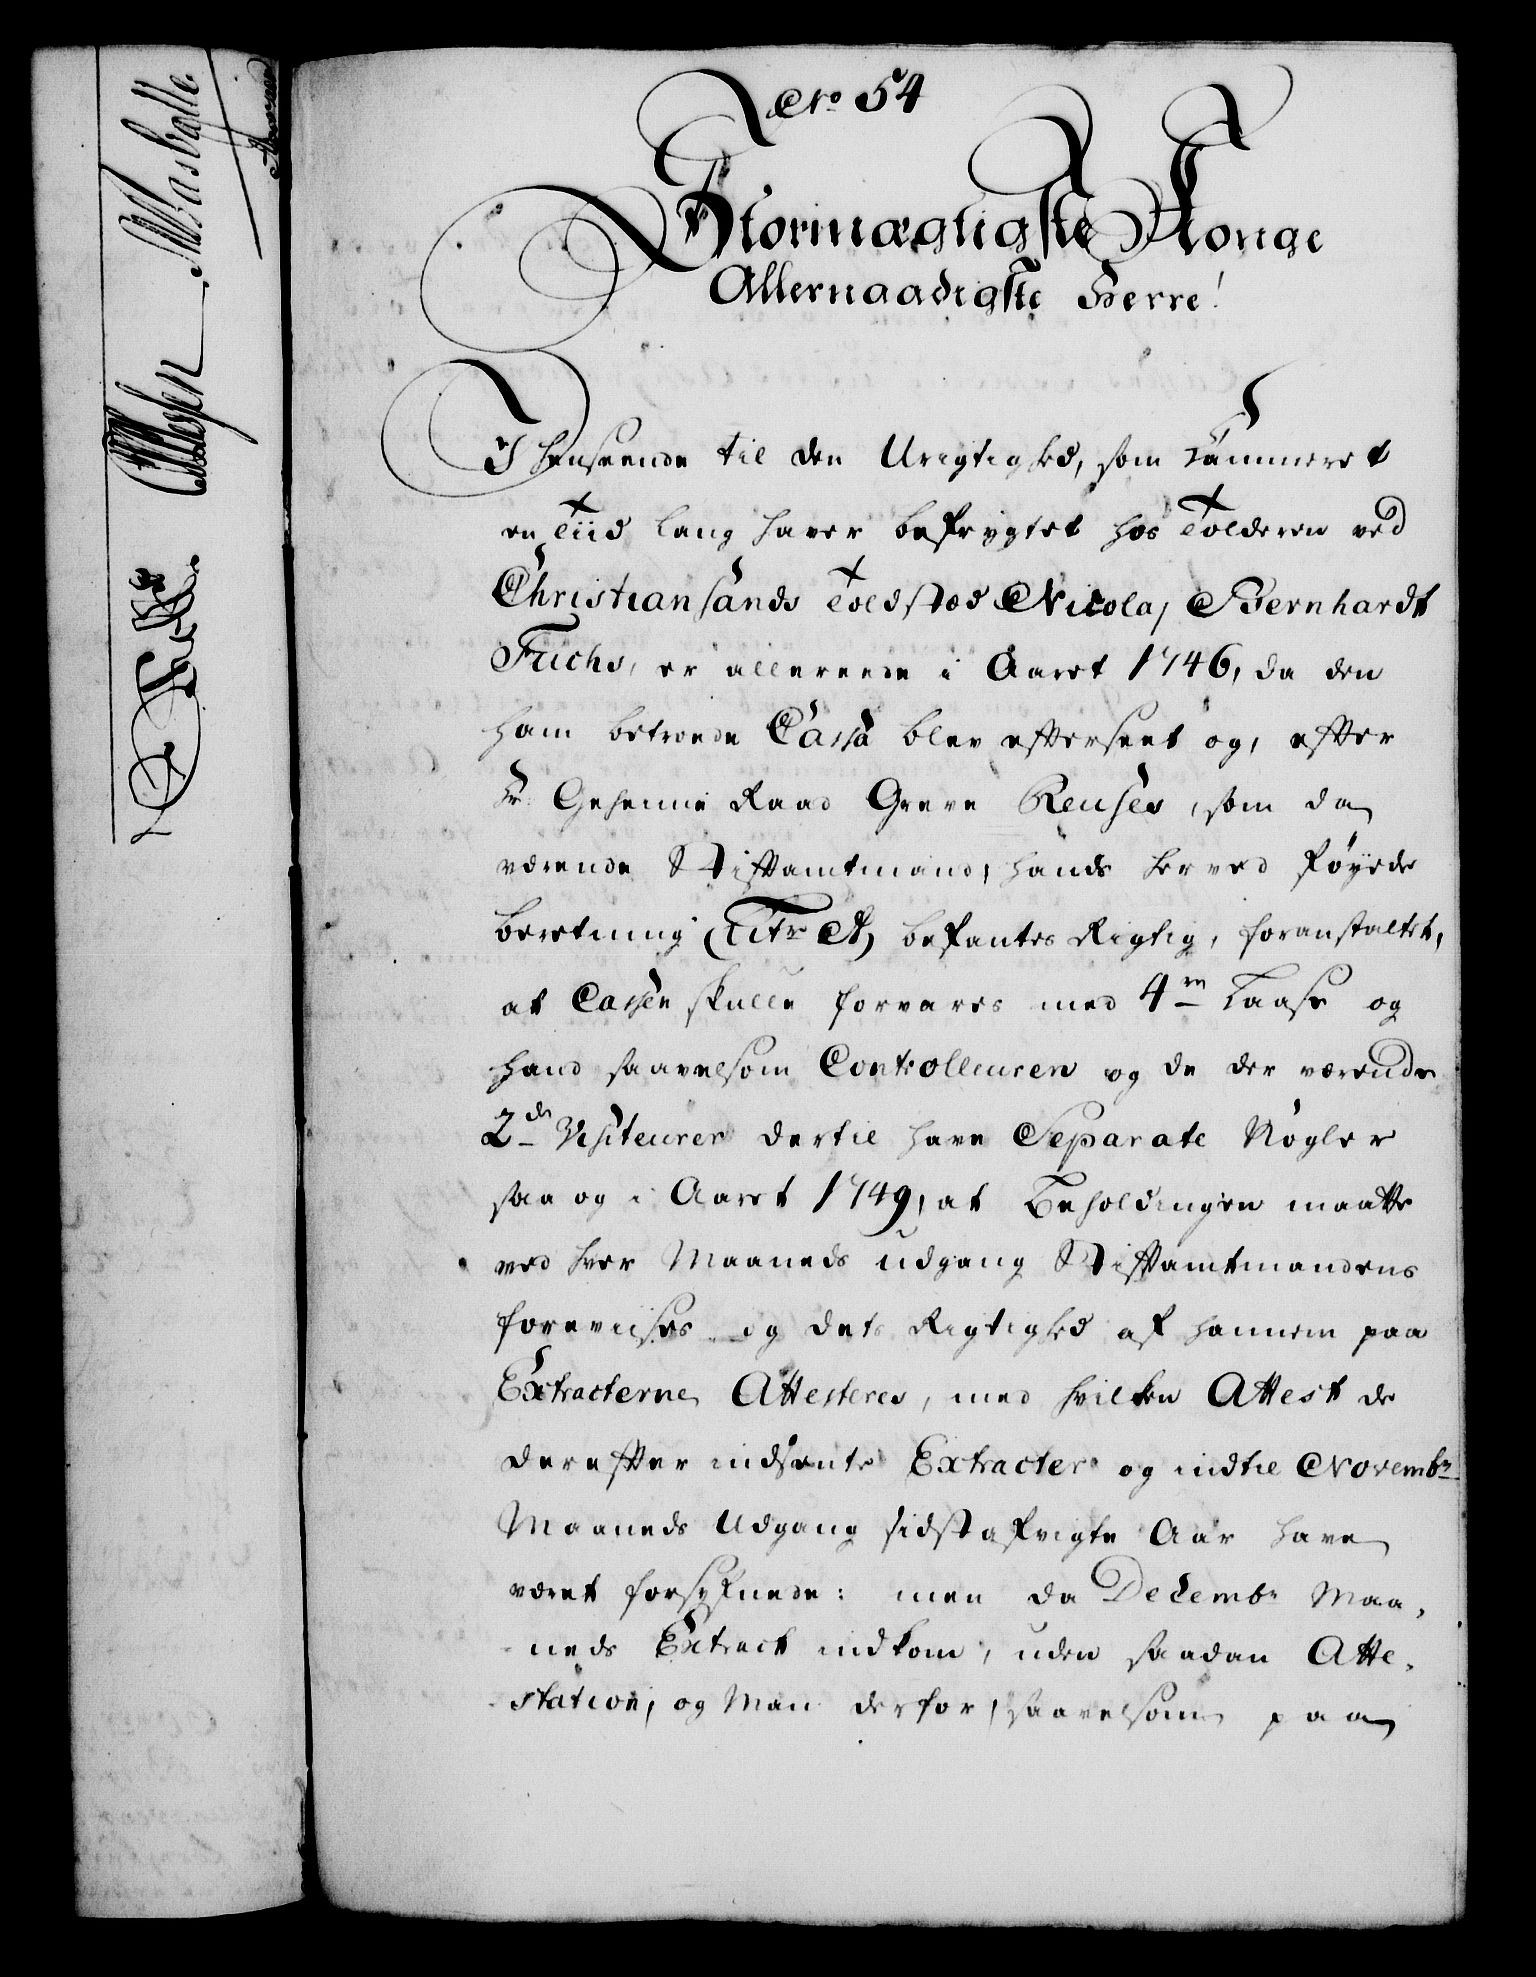 No 54
Stormægtigste Konge
Allernaadigste Herre!
I henseende til den Urigtighed, som Cammeret
en Tiid lang haver befrygtet hos Tolderen ved
Christiansands Toldstæd Nicolaj Bernhardt
Fuchs, er allereede i Aaret 1746, da den
ham betroede Cassa blev efterseet og, efter
Hr. Geheime Raad Greve Reuses, som da
værende Stiftamtmand, hands herved føyede
beretning (Litr A) befantes Rigtig, foranstaltet,
at Cassen skulle forvares med 4re Laase og
hand saavelsom Controlleuren og de der værende
2de Visiteurer dertil have Separate Nøgler
saa og i Aaret 1749, at Beholdingen maatte
ved hver Maaneds udgang Stiftamtmandens
foreviises og dets Rigtighed af hannem paa
Extracterne Attesteres, med hvilken Attest de
derefter indsente Extracter og indtil Novembr
Maaneds Udgang sidstafvigte Aar have
været forsyfnede: men da Decembr Maa-
neds Extract indkom, uden saadan Atte-
station, og Man derfor, saavelsom paa